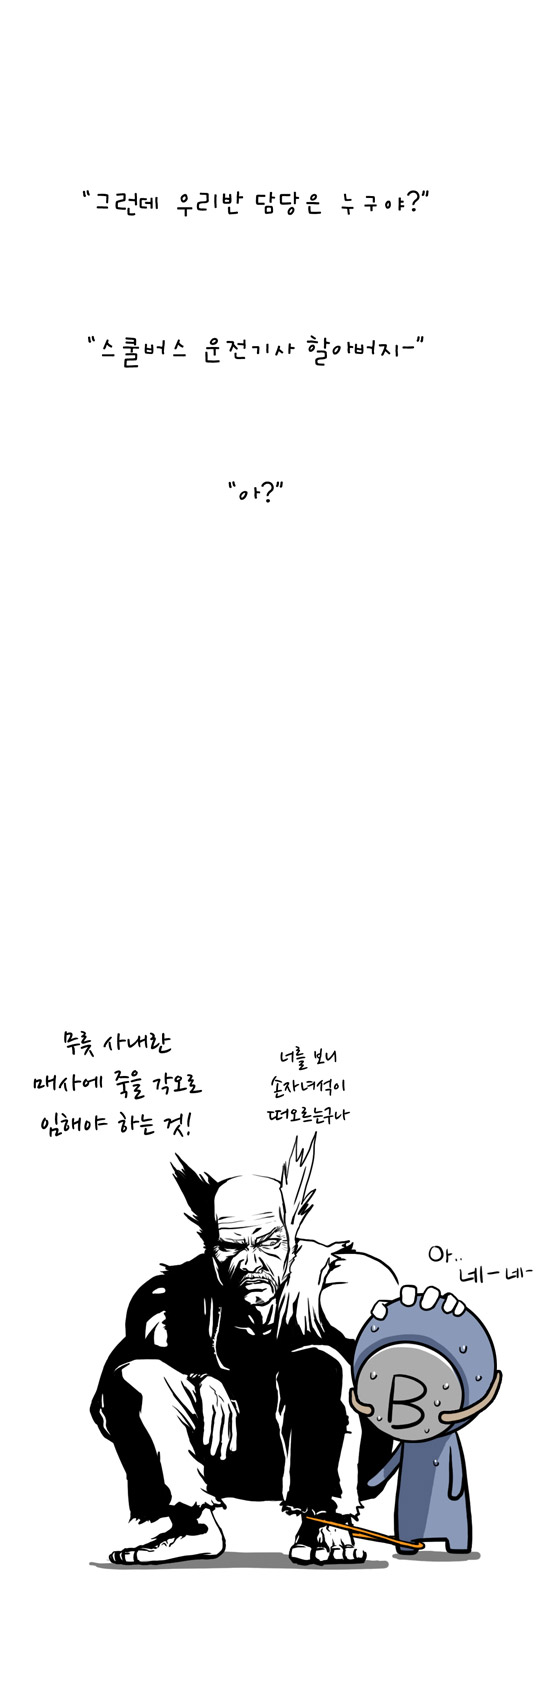 "그런데 우리반 담당은 누구야?"
"스쿨버스 운전기사 할아버지-"
"아?"
무릇 사내란
매사에 죽을 각오로
임해야 하는 것!
너를 보니
손자녀석이
떠오르는구나
아..
네-네-
B